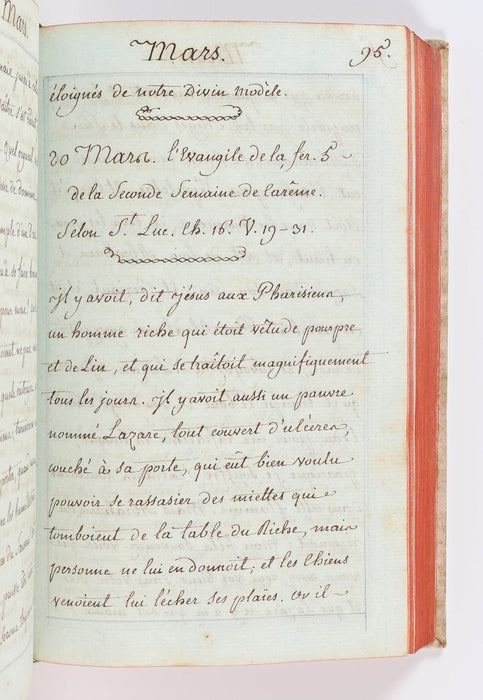 Mars.
95.
éloignés de notre Divin modèle.
20 Mars. l'Evangile de la fer. 5 -
de la Seconde Semaine de Carême.
Selon S.t Luc. Ch. 16. V. 19-31.
Il y avoit, dit Jésus aux Pharisiens,
un homme riche qui étoit vêtu de pourpre
et de Lin, et qui se traîtoit magnifiquement
tous les jours. Il y avoit aussi un pauvre
nommé Lazare, tout couvert d'ulcéres,
couché à sa porte, qui eût bien voulu
pouvoir se rassasier des miettes qui
tomboient de la table du Riche, mais
personne ne lui en donnoit; et les Chiens
venoient lui lécher ses plaïes. Or il -